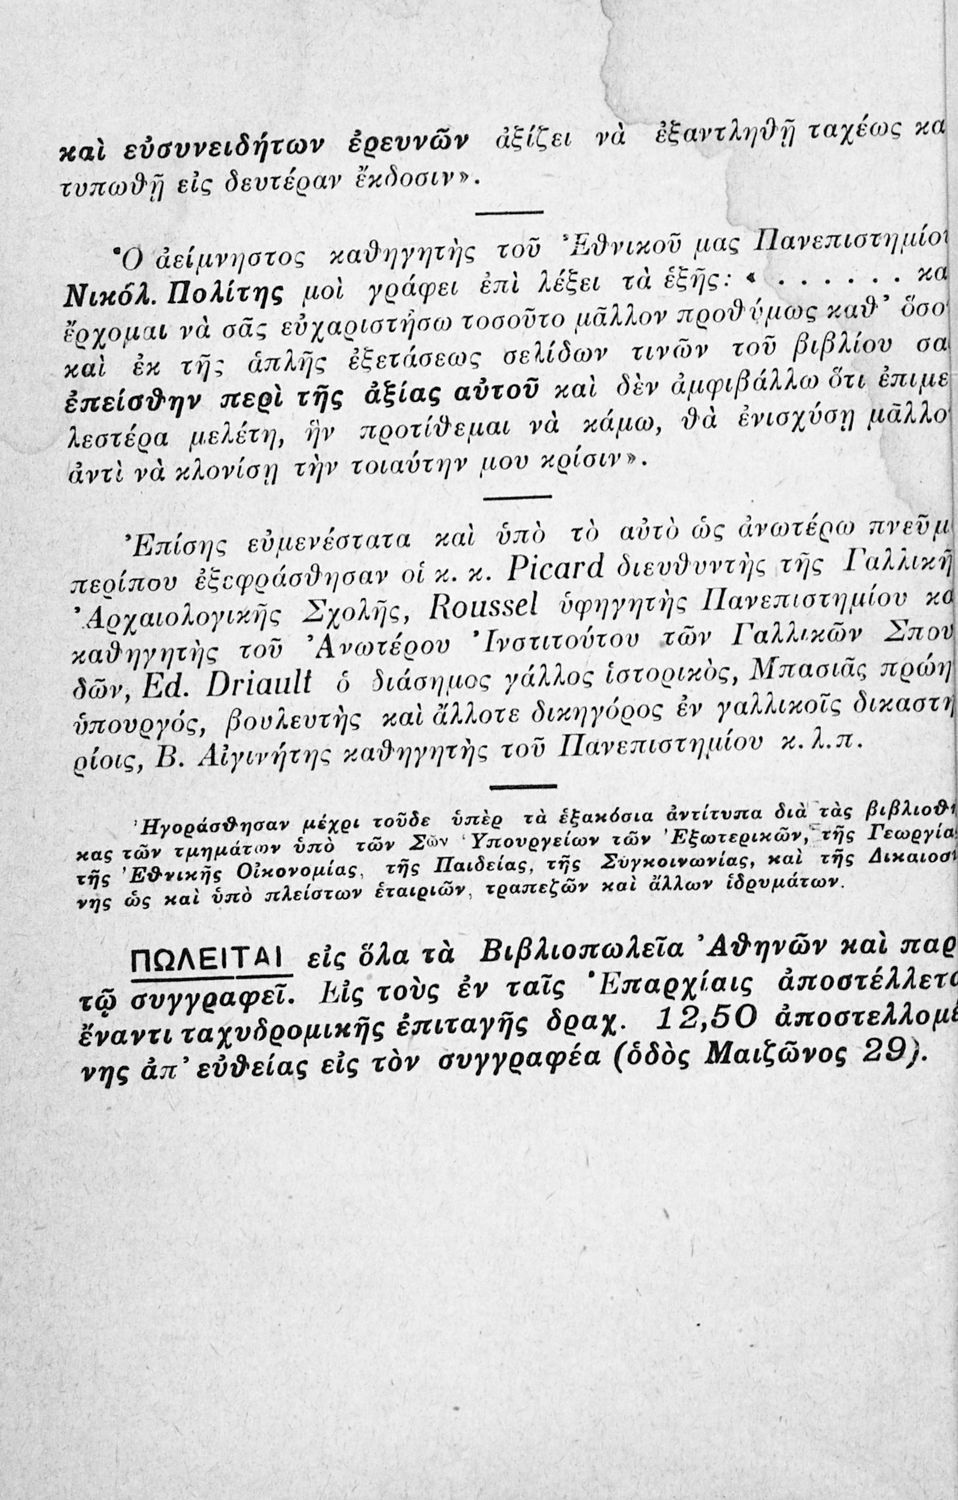 καὶ εὐσυνειδήτων ἐρευνῶν ἀξίζει νὰ ἐξαντληθῇ ταχέως κα
τυπωθῇ εἰς δευτέραν ἔκδοσιν».
Ὁ ἀείμνηστος καθηγητὴς τοῦ Ἐθνικοῦ μας Πανεπιστημίου
Νικόλ. Πολίτης μοὶ γράφει ἐπὶ λέξει τὰ ἑξῆς: « . . . . . . κα
ἔρχομαι νὰ σᾶς εὐχαριστήσω τοσοῦτο μᾶλλον προθύμως καθ' ὅσο
καὶ ἐκ τῆς ἁπλῆς ἐξετάσεως σελίδων τινῶν τοῦ βιβλίου σα
ἐπείσθην περὶ τῆς ἀξίας αὐτοῦ καὶ δὲν ἀμφιβάλλω ὅτι ἐπιμε
λεστέρα μελέτη, ἣν προτίθεμαι νὰ κάμω, θὰ ἐνισχύσῃ μᾶλλο
ἀντὶ νὰ κλονίσῃ τὴν τοιαύτην μου κρίσιν».
Ἐπίσης εὐμενέστατα καὶ ὑπὸ τὸ αὐτὸ ὡς ἀνωτέρω πνεῦμ
περίπου ἐξεφράσθησαν οἱ κ. κ. Picard διευθυντὴς τῆς Γαλλικῆ
Ἀρχαιολογικῆς Σχολῆς, Roussel ὑφηγητὴς Πανεπιστημίου κα
καθηγητὴς τοῦ Ἀνωτέρου Ἰνστιτούτου τῶν Γαλλικῶν Σπου
δῶν, Ed. Driault ὁ διάσημος γάλλος ἱστορικὸς, Μπασιᾶς πρώη
ὑπουργός, βουλευτὴς καὶ ἄλλοτε δικηγόρος ἐν γαλλικοῖς δικαστη
ρίοις, Β. Αἰγινήτης καθηγητὴς τοῦ Πανεπιστημίου κ.λ.π.
Ἠγοράσθησαν μέχρι τοῦδε ὑπὲρ τὰ ἑξακόσια ἀντίτυπα διὰ τὰς βιβλιοθή
κας τῶν τμημάτων ὑπὸ τῶν Σῶν Ὑπουργείων τῶν Ἐξωτερικῶν, τῆς Γεωργίας
τῆς Ἐθνικῆς Οἰκονομίας, τῆς Παιδείας, τῆς Συγκοινωνίας, καὶ τῆς Δικαιοσύ
νης ὡς καὶ ὑπὸ πλείστων ἑταιριῶν, τραπεζῶν καὶ ἄλλων ἱδρυμάτων.
ΠΩΛΕΙΤΑΙ εἰς ὅλα τὰ Βιβλιοπωλεῖα Ἀθηνῶν καὶ παρ
τῷ συγγραφεῖ. Εἰς τοὺς ἐν ταῖς Ἐπαρχίαις ἀποστέλλετα
ἔναντι ταχυδρομικῆς ἐπιταγῆς δραχ. 12,50 ἀποστελλομέ
νης ἀπ' εὐθείας εἰς τὸν συγγραφέα (ὁδὸς Μαιζῶνος 29).